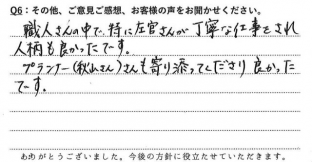 Q6：その他、ご意見ご感想、お客様の声をお聞かせください。
職人さんの中で、特に左官さんが丁寧な仕事をされ
人柄も良かったでーす。
プランナー（秋山さん）さんも寄り添ってくださり良かった
でーす。
ありがとうございました。今後の方針に役立たせていただきます。